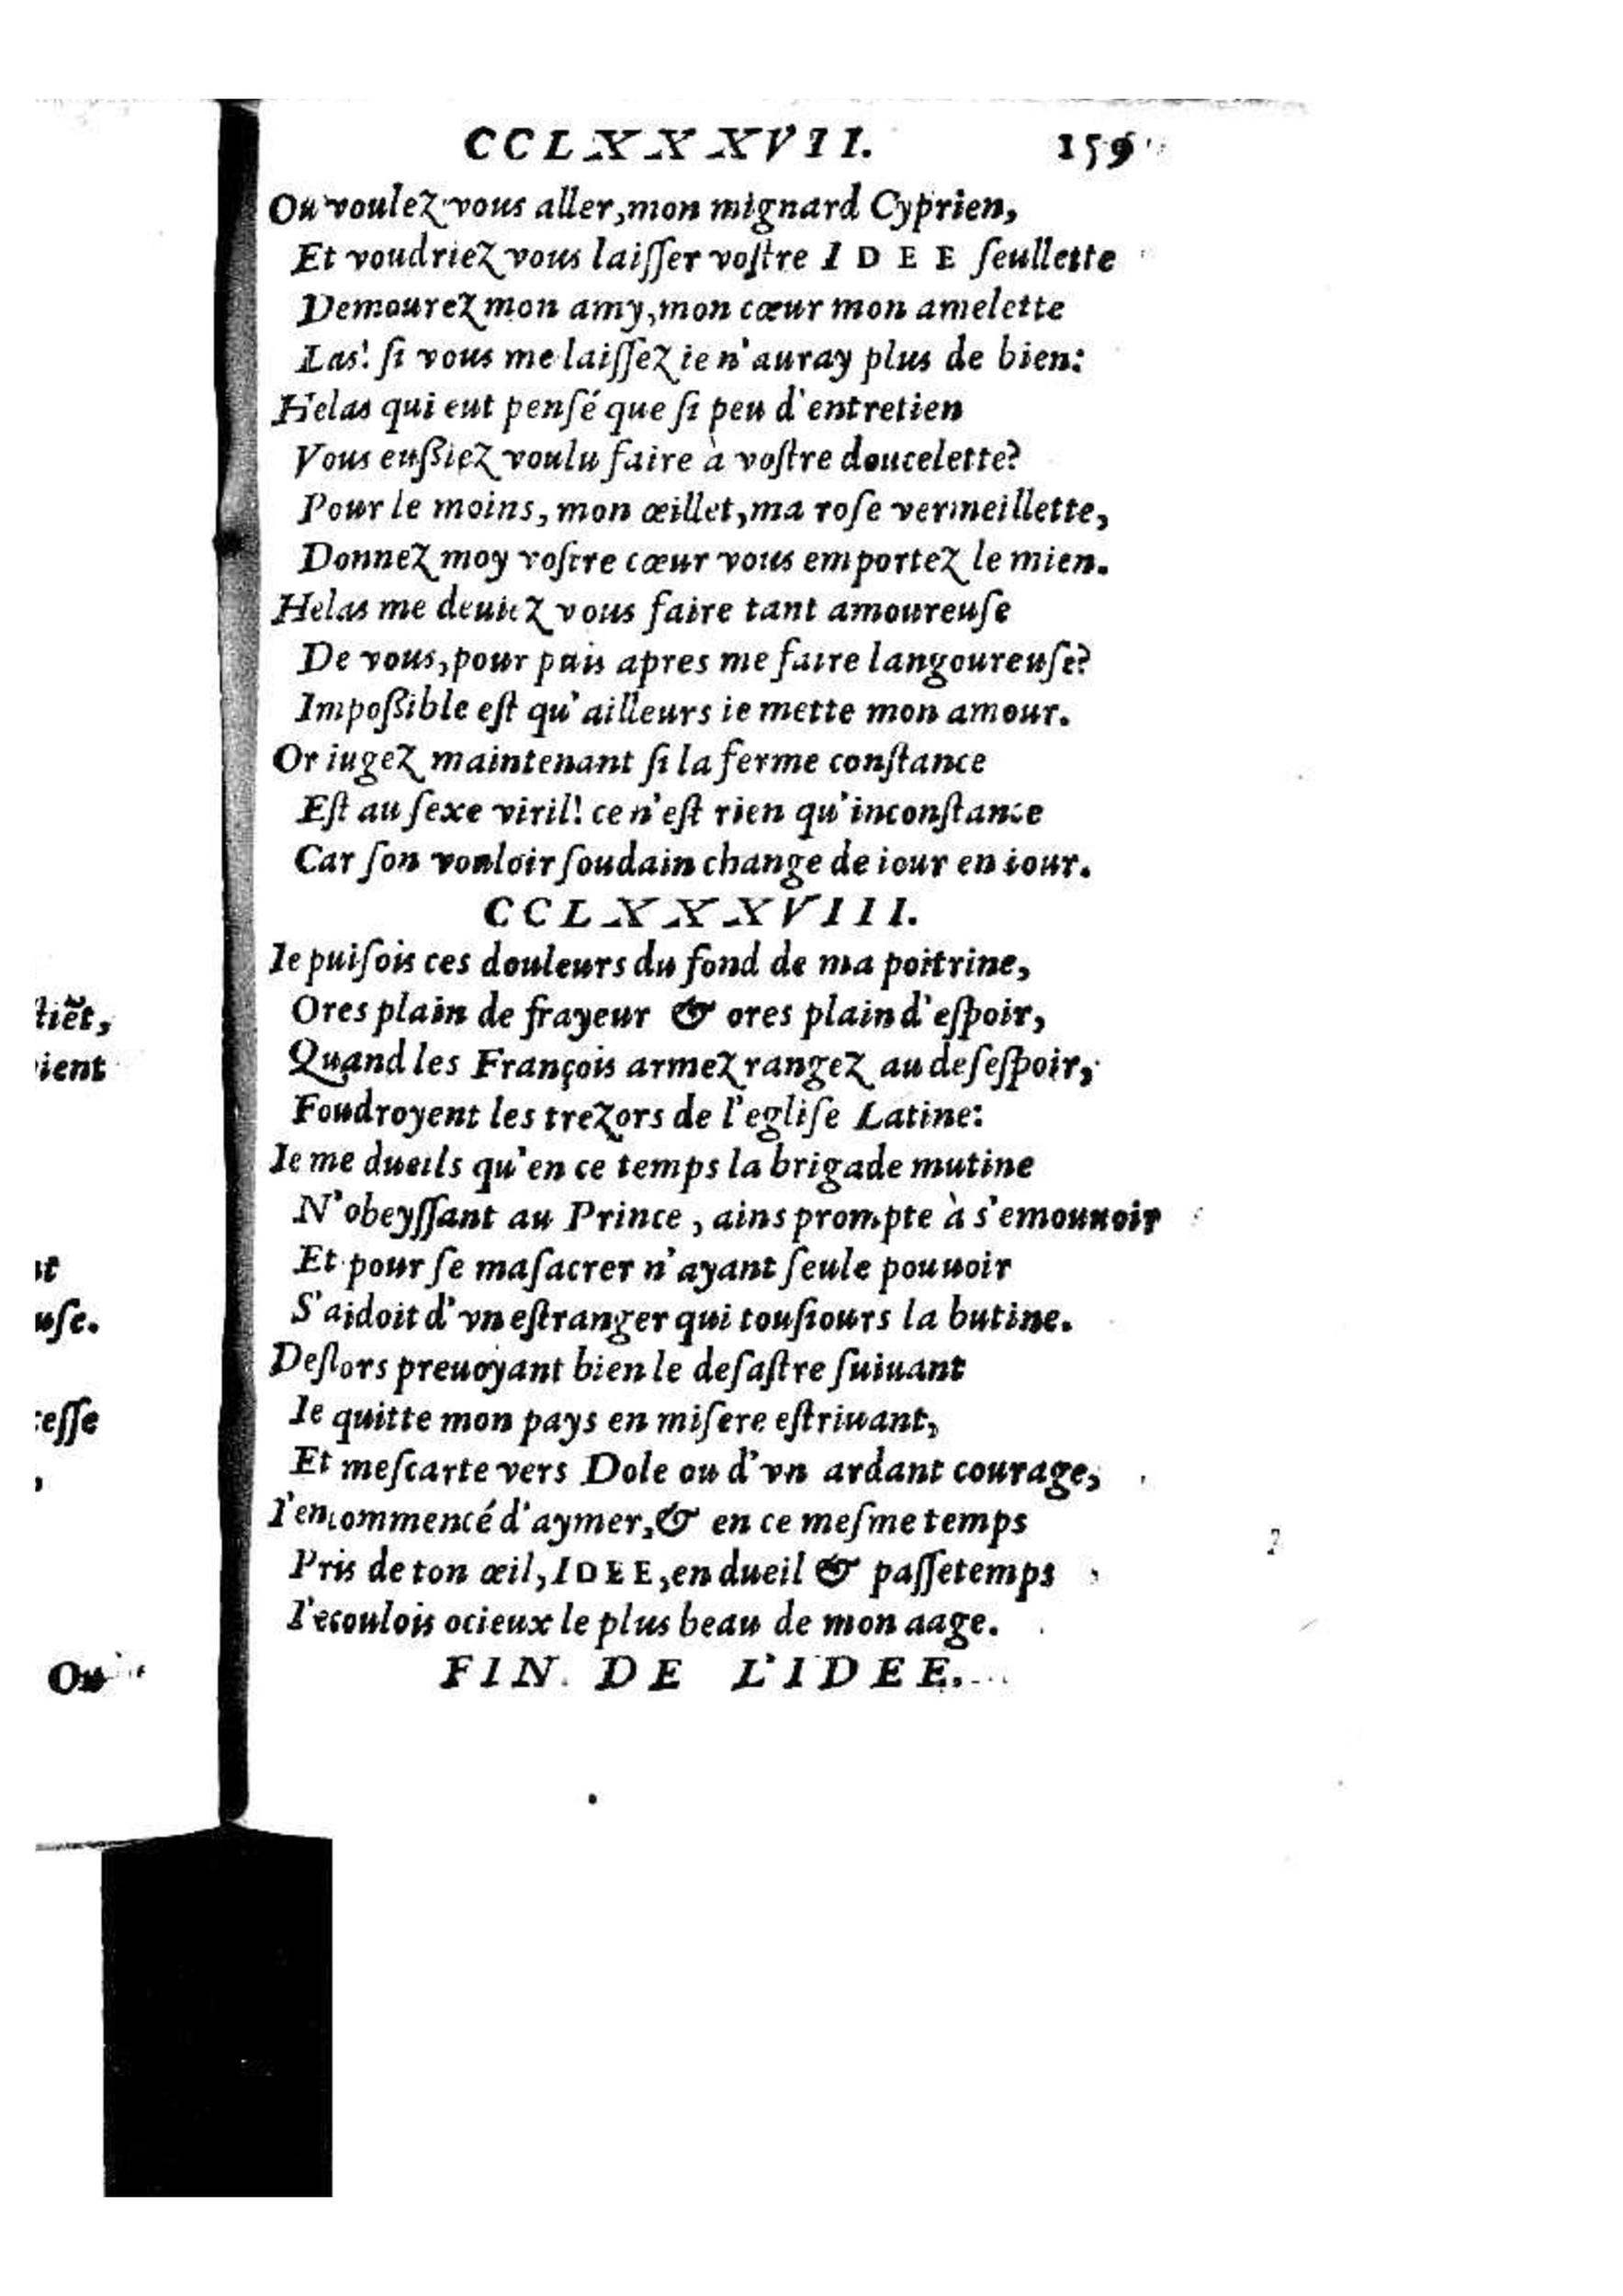 CCLXXXVII. 159
Ou voulez vous aller, mon mignard Cyprien,
Et voudriez vous laiſſer voſtre IDEE ſeullette
Demourez mon amy, mon cœur mon amelette
Las! ſi vous me laiſſez ie n'auray plus de bien:
Helas qui eut penſé que ſi peu d'entretien
Vous eußiez voulu faire à voſtre doucelette?
Pour le moins, mon œillet, ma roſe vermeillette,
Donnez moy voſtre cœur vous emportez le mien.
Helas me deuiez vous faire tant amoureuſe
De vous, pour puis apres me faire langoureuſe?
Impoßible eſt qu'ailleurs ie mette mon amour.
Or iugez maintenant ſi la ferme conſtance
Eſt au ſexe viril! ce n'eſt rien qu'inconſtance
Car ſon vouloir ſoudain change de iour en iour.
CCLXXXVIII.
Ie puiſois ces douleurs du fond de ma poitrine,
Ores plain de frayeur & ores plain d'eſpoir,
Quand les François armez rangez au deſeſpoir,
Foudroyent les trezors de l'egliſe Latine:
Ie me dueils qu'en ce temps la brigade mutine
N'obeyſſant au Prince, ains prompte à s'emouuoir
Et pour ſe maſacrer n'ayant ſeule pouuoir
S'aidoit d'vn eſtranger qui touſiours la butine.
Deſlors preuoyant bien le deſaſtre ſuiuant
Ie quitte mon pays en miſere eſtriuant,
Et meſcarte vers Dole ou d'vn ardant courage,
I'encommencé d'aymer, & en ce meſme temps
Pris de ton œil, IDEE, en dueil & paſſetemps
I'ecoulois ocieux le plus beau de mon aage.
FIN. DE L'IDEE.
Ou